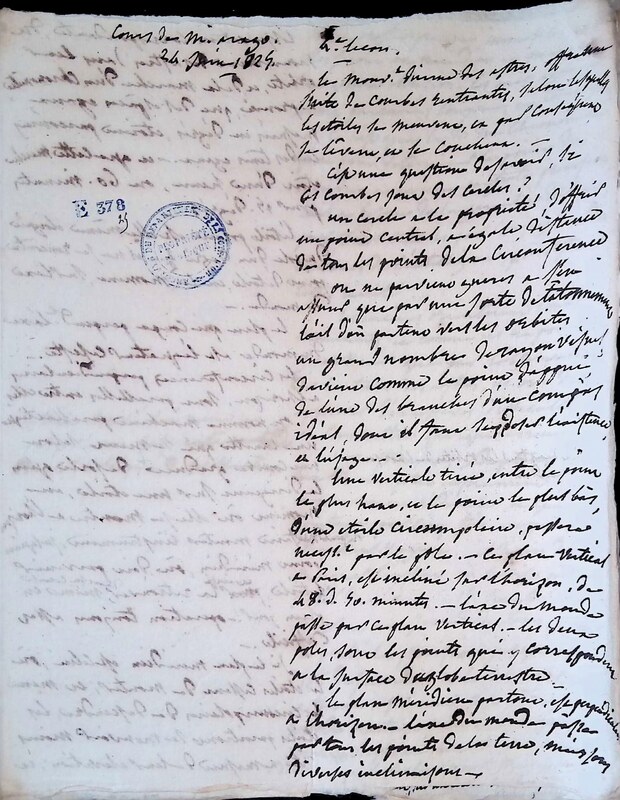 Cours de M. arago.
24 juin 1825.
4e leçon.
le mouvt diurne des astres, offre une
suite de courbes rentrantes, selon lesquelles
les étoiles se meuvent, et par conséquent
se lèvent, et se couchent. —
c'est une question de savoir, si
ces courbes sont des cercles?
un cercle a la propriété d'offrir
un point central, a égale distance
de tous les points de la circonférence
on ne parvient gueres a s'en
assurer que par une sorte de tâtonnement
l'œil d'où partent vers les orbites
un grand nombre de rayons visuels
devient comme le point d'appui,
de l'une des branches d'un compas
idéal, dont il faut supposer l'existence,
et l'usage. —
Une verticale tirée, entre le point
le plus haut, et le point le plus bas,
d'une etoile circompolaire, passera
nécesst par le pôle. — Ce plan vertical
a Paris, est incliné sur l'horizon, de
48. d. 50. minutes. — l'axe du monde
passe par ce plan vertical. — les deux
poles, sont les points qui y correspondent
a la surface du globe terrestre. —
le plan méridien partout, est perpendiculaire
a l'horizon. — l'axe du monde passe
par tous les points de la terre, mais sous
diverses inclinaisons —
E 378